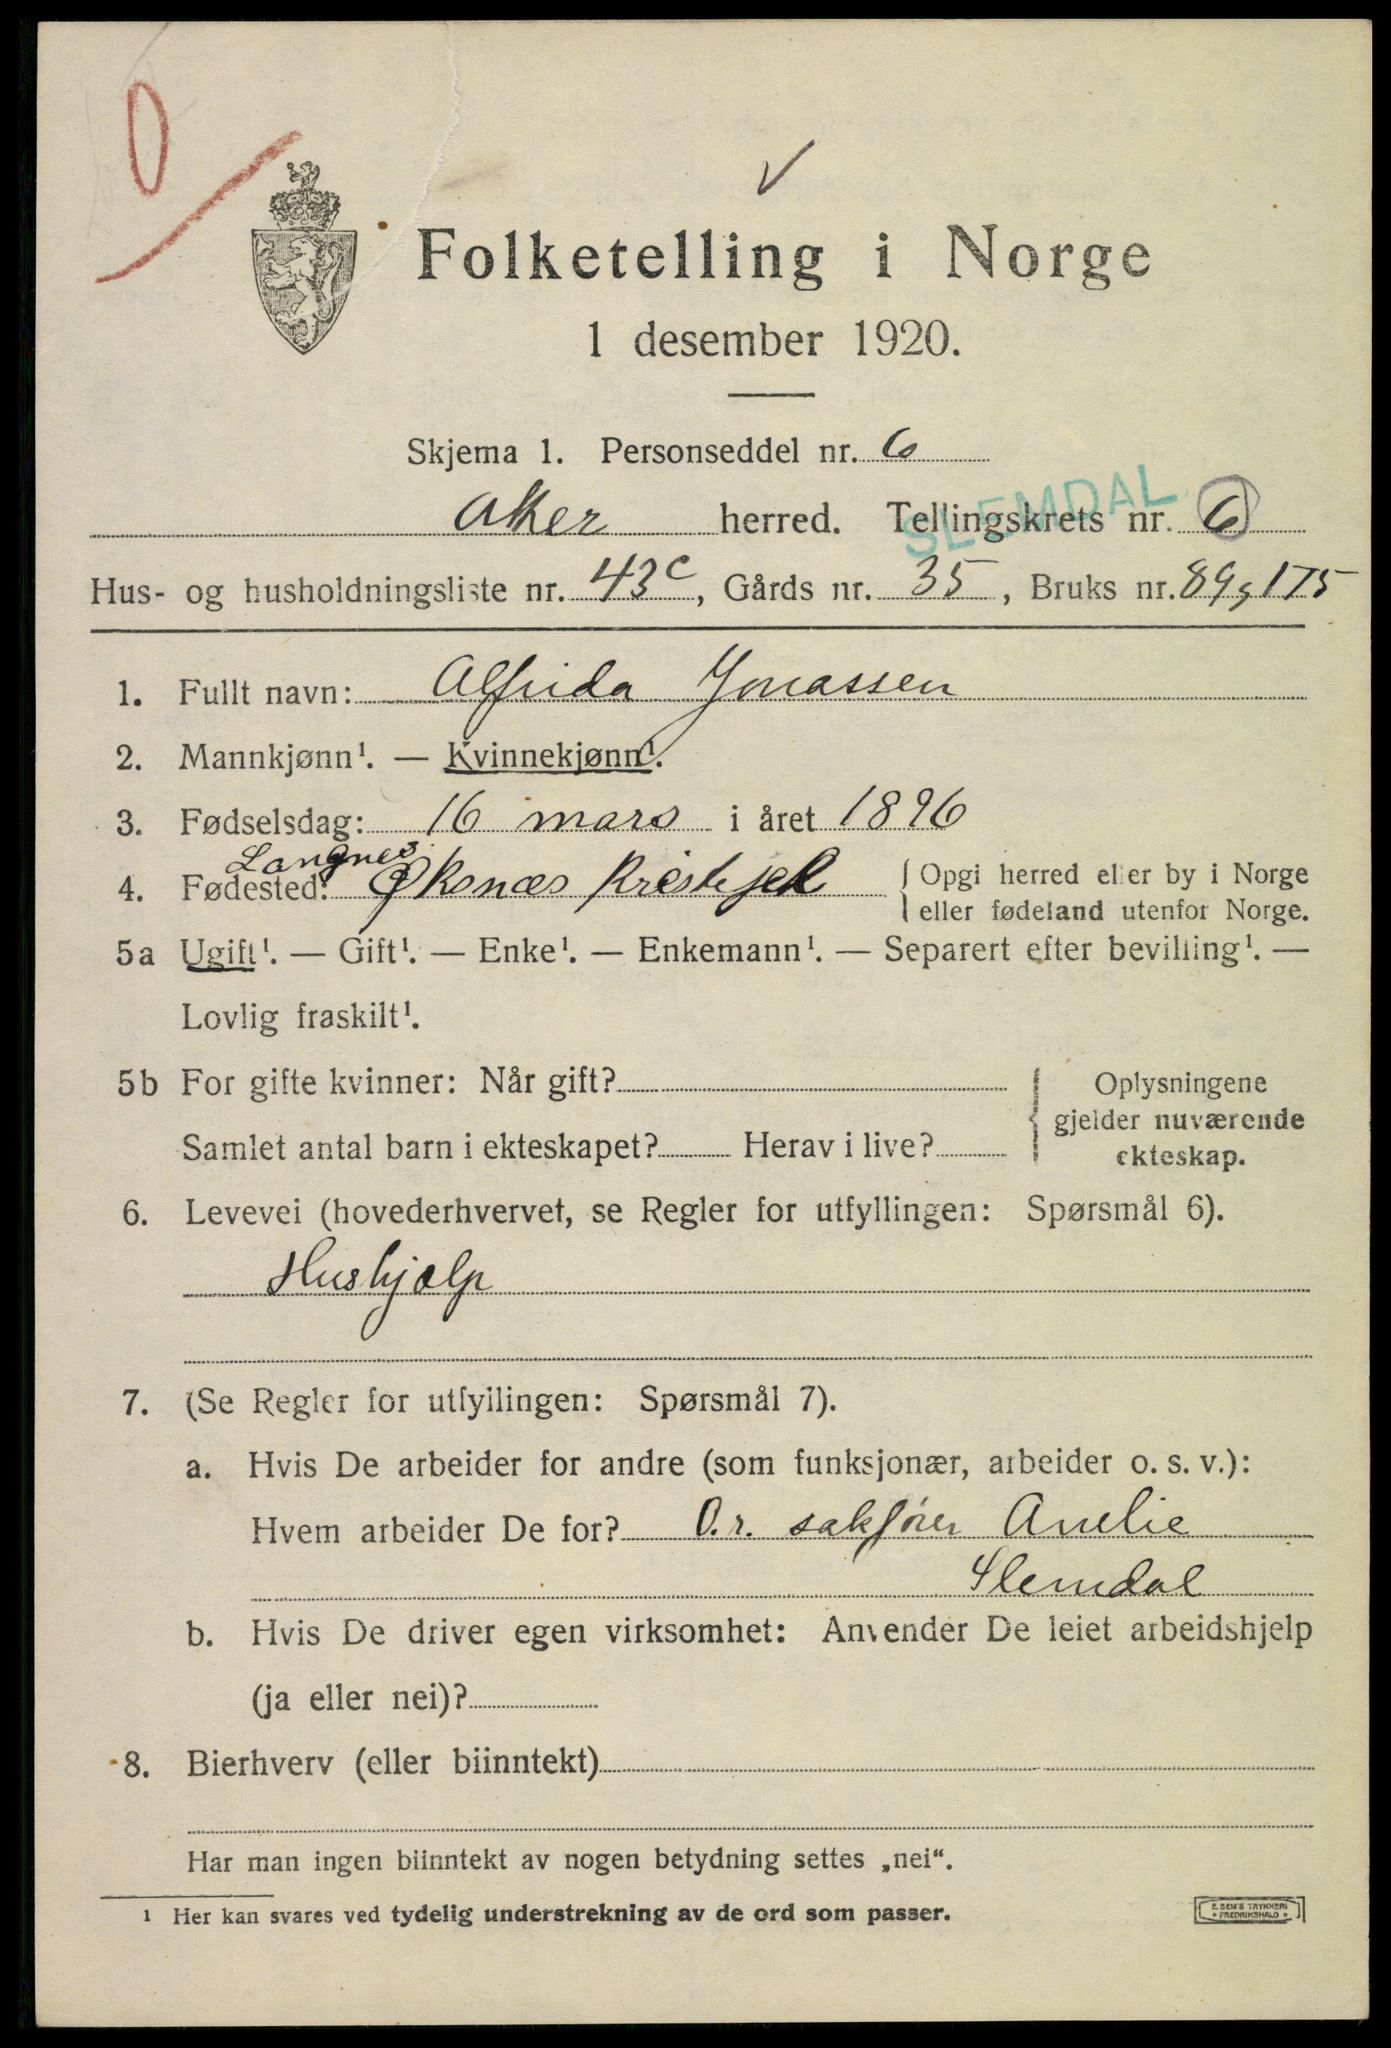 0
Folketelling i Norge
1 desember 1920.
Skjema 1. Personseddel nr. 6
Aker herred. Tellingskrets nr. 6
SLEMDAL
Hus- og husholdningsliste nr. 43c, Gårds nr. 35, Bruks nr. 89, 175
1. Fullt navn: Alfrida Jonassen
2. Mannkjønn¹. — Kvinnekjønn¹.
3. Fødselsdag: 16 mars i året 1896
Langnes
4. Fødested: Øksnæs
Opgi herred eller by i Norge
eller fødeland utenfor Norge.
5a Ugift¹. — Gift¹. — Enke¹. — Enkemann¹. — Separert efter bevilling¹. —
Lovlig fraskilt¹.
5b For gifte kvinner: Når gift?
Samlet antal barn i ekteskapet? Herav i live?
Oplysningene
gjelder nuværende
ekteskap.
6. Levevei (hovederhvervet, se Regler for utfyllingen: Spørsmål 6).
Hushjælp
7. (Se Regler for utfyllingen: Spørsmål 7).
a. Hvis De arbeider for andre (som funksjonær, arbeider o. s. v.):
Hvem arbeider De for? O.r. sakfører
Slemdal
b. Hvis De driver egen virksomhet: Anvender De leiet arbeidshjelp
(ja eller nei)?
8. Bierhverv (eller biinntekt)
Har man ingen biinntekt av nogen betydning settes „nei“.
¹ Her kan svares ved tydelig understrekning av de ord som passer.
E. SEM'S TRYKKERI
FREDRIKSHALD